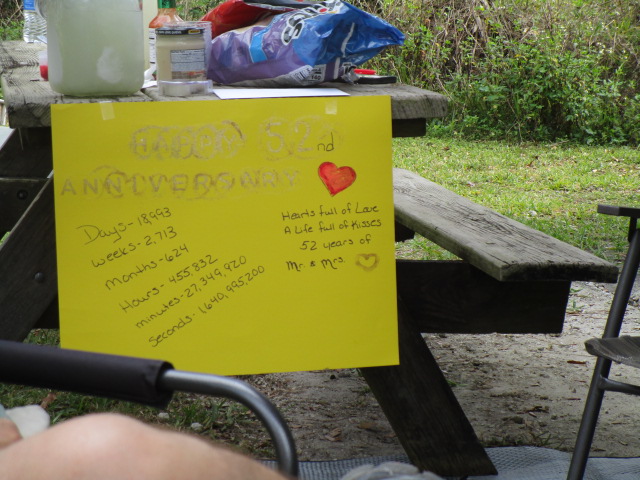 HAPPY 52nd
ANNIVERSARY
Days- 18,993
weeks- 2,713
months- 624
Hours- 455,832
minutes- 27,349,920
Seconds- 1,640,995,200
Hearts full of Love
A Life full of Kisses
52 years of
Mr. & Mrs.